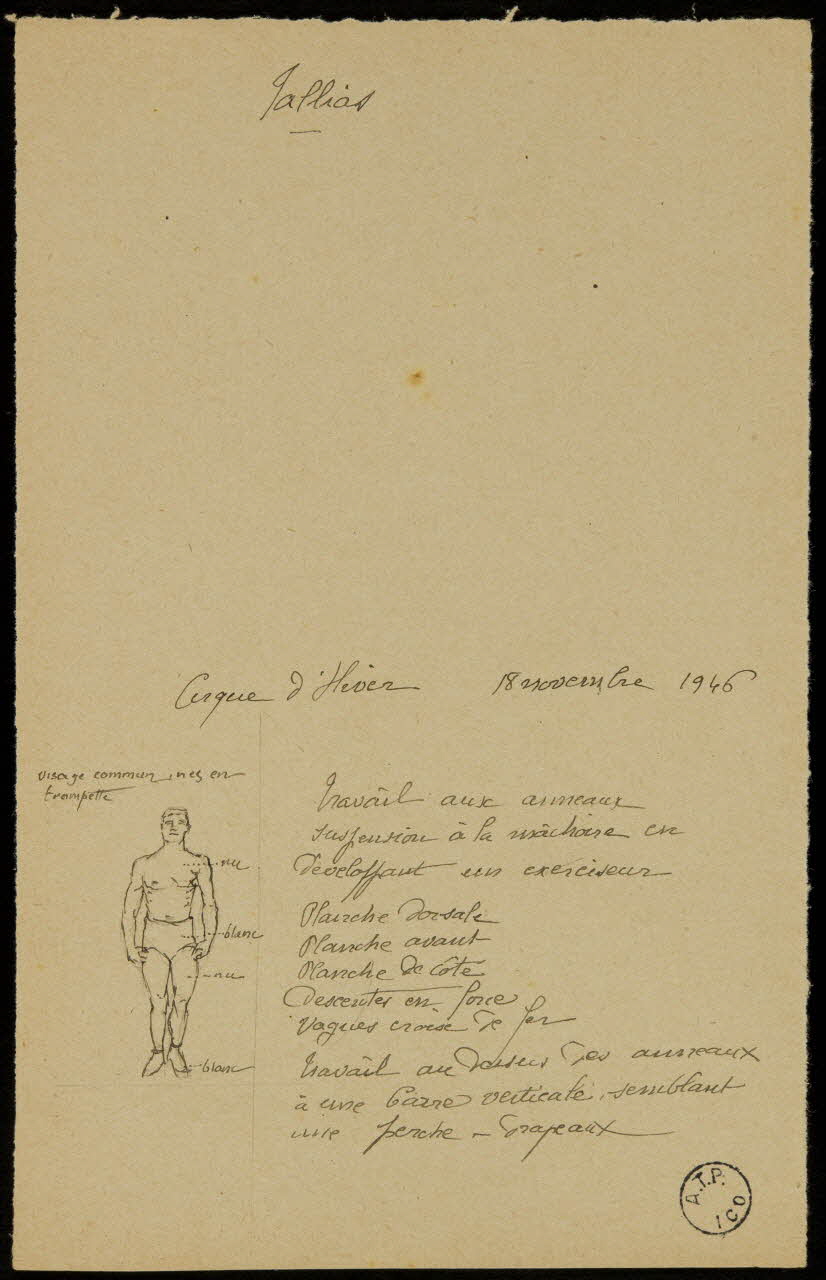 Jallias
Cirque d'Hiver 18 novembre 1946
visage commun, nez en
trompette
nu
blanc
nu
blanc
Travail aux anneaux
suspension à la mâchoire en
développant un exerciseur
Planche dorsale
Planche avant
Planche de côté
Descentes en force
Vagues croix de fer
Travail au dessus des anneaux
à une barre verticale, semblant
une perche - Drapeaux
A.T.P.
ICO